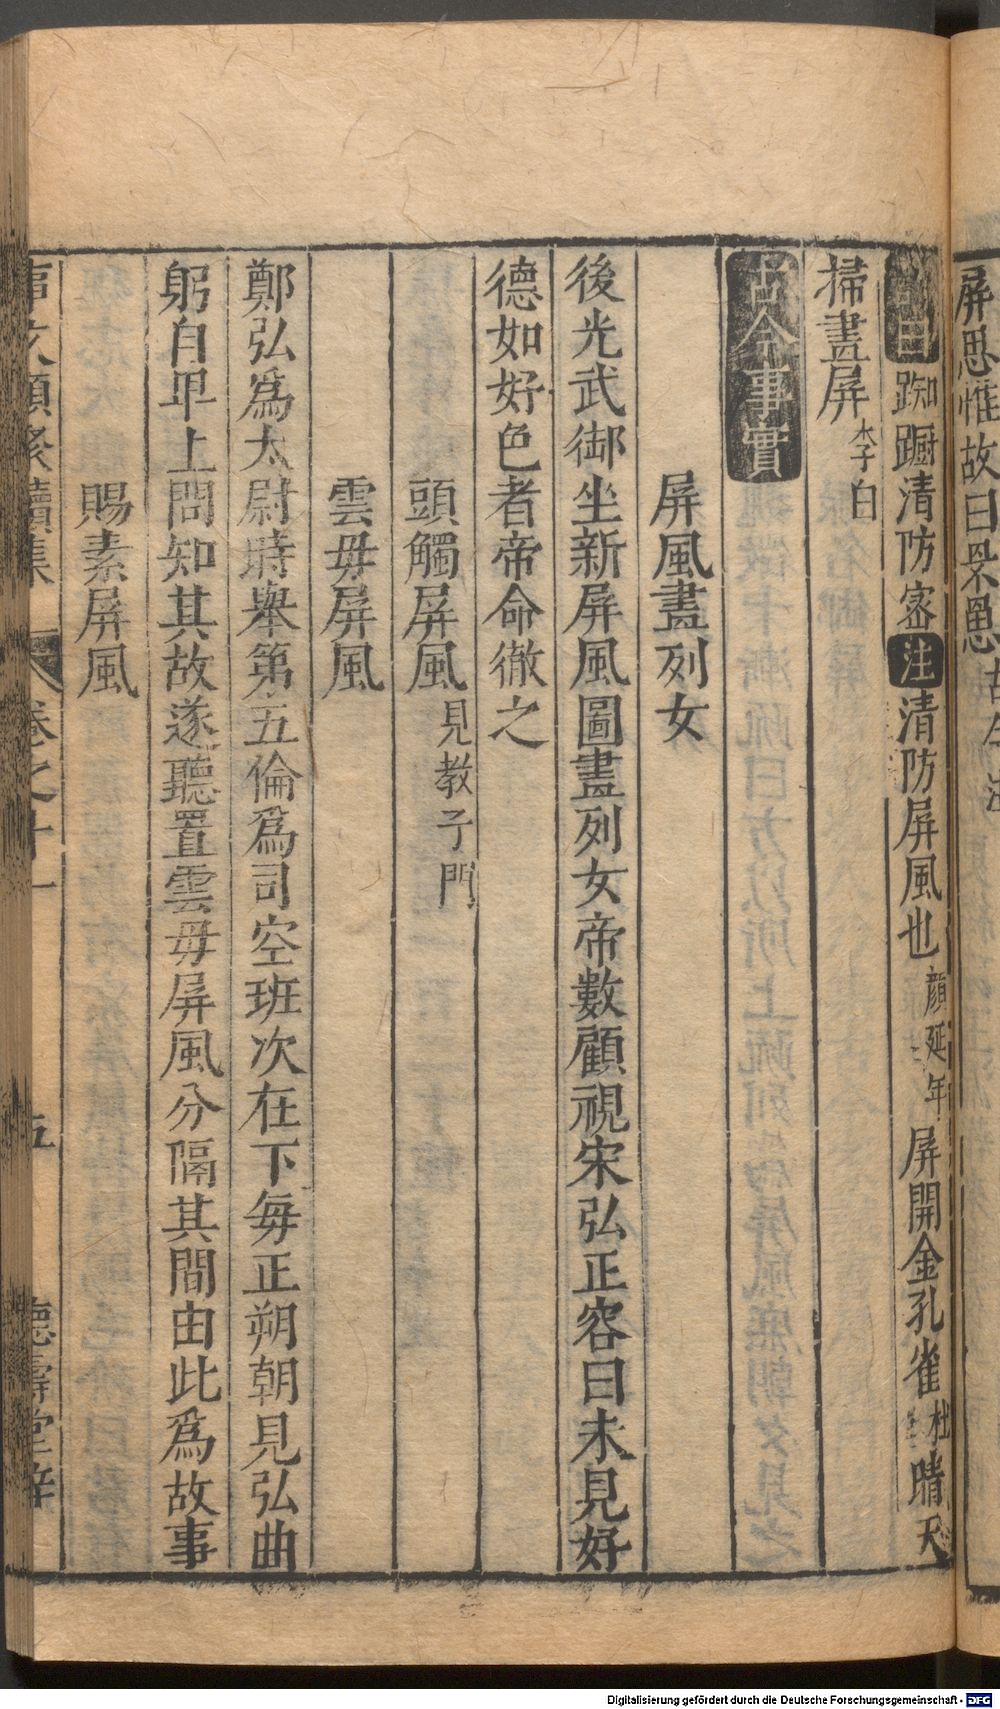 屏思惟故曰罘罳
踟蹰清防宻注清防屏風也顔延年屏開金孔雀杜晴天
掃畫屏李白
古今事實
屏風畫列女
後光武御坐新屏風圖畫列女帝數顧視宋弘正容曰未見好
德如好色者帝命徹之
頭觸屏風見教子門
雲毋屏風
鄭弘爲太尉時舉第五倫爲司空班次在下每正朔朝見弘曲
躬自卑上問知其故遂聽置雲毋屏風分隔其間由此爲故事
賜素屏風
事文類聚續集 卷之十一 五 德壽堂梓
Digitalisierung gefördert durch die Deutsche Forschungsgemeinschaft - DFG